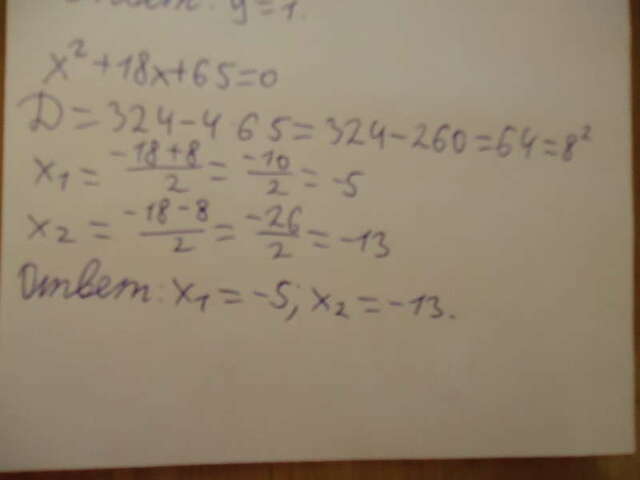 Ответ: y=1.
x²+18x+65=0
D=324-4 65=324-260=64=8²
x₁=\frac{-18+8}{2}=\frac{-10}{2}=-5
x₂=\frac{-18-8}{2}=\frac{-26}{2}=-13
Ответ: x₁=-5; x₂=-13.